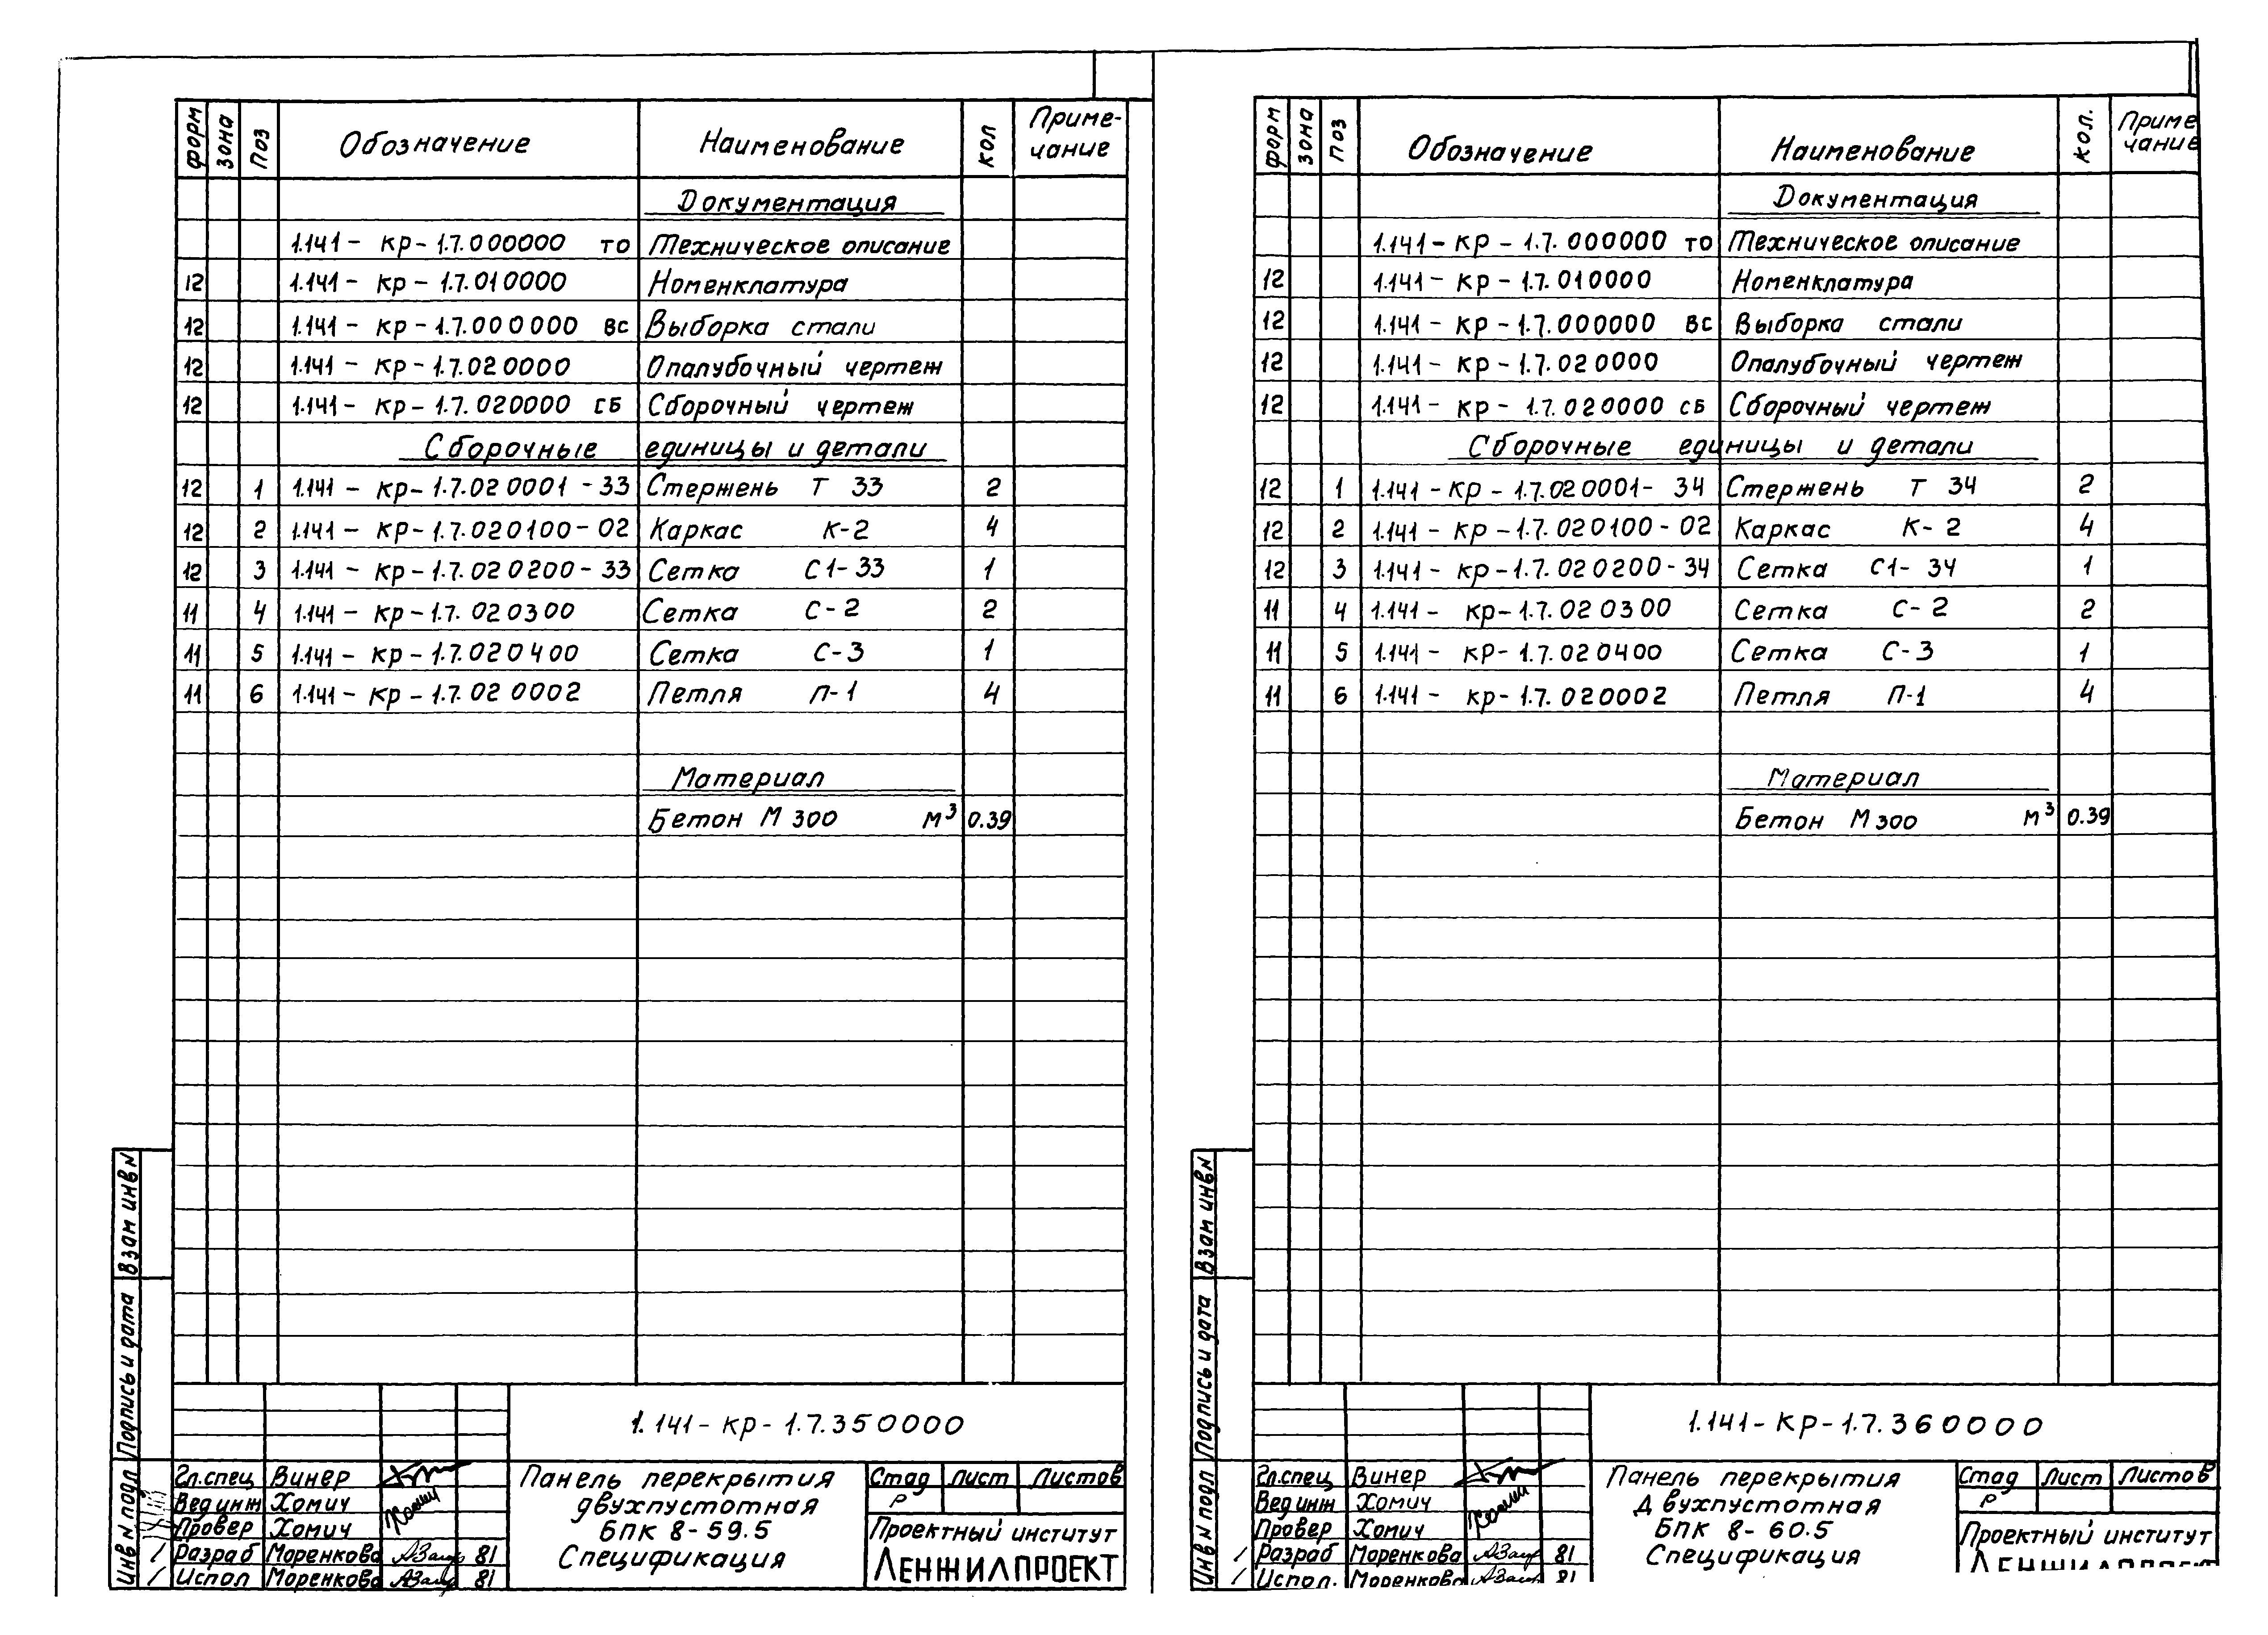 форм зона поз Обозначение Наименование кол Приме-
чание
Документация
1.141 - кр - 1.7.000000 ТО Техническое описание
12 1.141 - кр - 1.7.010000 Номенклатура
12 1.141 - кр - 1.7.000000 ВС Выборка стали
12 1.141 - кр - 1.7.020000 Опалубочный чертеж
12 1.141 - кр - 1.7.020000 СБ Сборочный чертеж
Сборочные единицы и детали
12 1 1.141 - кр - 1.7.020001 - 33 Стержень Т 33 2
12 2 1.141 - кр - 1.7.020100 - 02 Каркас К-2 4
12 3 1.141 - кр - 1.7.020200 - 33 Сетка С1-33 1
11 4 1.141 - кр - 1.7.020300 Сетка С-2 2
11 5 1.141 - кр - 1.7.020400 Сетка С-3 1
11 6 1.141 - кр - 1.7.020002 Петля П-1 4
Материал
Бетон М 300 м³ 0.39
Взам инв N
Подпись и дата
Инв N подл
1.141 - кр - 1.7.350000
Гл.спец Винер
Вед инж Хомич
Провер Хомич
Разраб Моренкова 81
Испол Моренкова 81
Панель перекрытия
двухпустотная
БПК 8-59.5
Спецификация
Стад Лист Листов
Р
Проектный институт
ЛЕНЖИЛПРОЕКТ
форм зона поз Обозначение Наименование кол. Приме
чание
Документация
1.141 - кр - 1.7.000000 ТО Техническое описание
12 1.141 - кр - 1.7.010000 Номенклатура
12 1.141 - кр - 1.7.000000 ВС Выборка стали
12 1.141 - кр - 1.7.020000 Опалубочный чертеж
12 1.141 - кр - 1.7.020000 СБ Сборочный чертеж
Сборочные единицы и детали
12 1 1.141 - кр - 1.7.020001 - 34 Стержень Т 34 2
12 2 1.141 - кр - 1.7.020100 - 02 Каркас К-2 4
12 3 1.141 - кр - 1.7.020200 - 34 Сетка С1-34 1
11 4 1.141 - кр - 1.7.020300 Сетка С-2 2
11 5 1.141 - кр - 1.7.020400 Сетка С-3 1
11 6 1.141 - кр - 1.7.020002 Петля П-1 4
Материал
Бетон М 300 м³ 0.39
Взам инв N
Подпись и дата
Инв N подл
1.141 - кр - 1.7.360000
Гл.спец Винер
Вед инж Хомич
Провер Хомич
Разраб Моренкова 81
Испол. Моренкова 81
Панель перекрытия
Двухпустотная
БПК 8-60.5
Спецификация
Стад Лист Листов
Р
Проектный институт
ЛЕНЖИЛПРОЕКТ